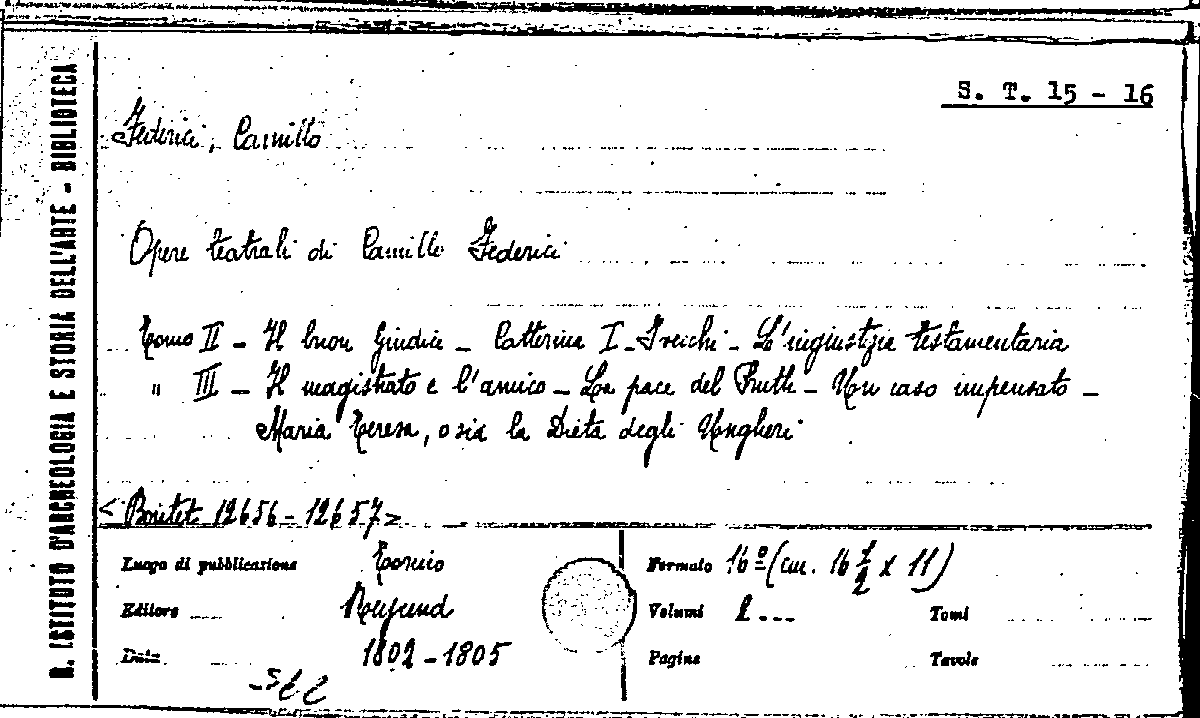 R. ISTITUTO D'ARCHEOLOGIA E STORIA DELL'ARTE - BIBLIOTECA
S. T. 15 - 16
Federici, Camillo
Opere teatrali di Camillo Federici
Tomo II - Il buon Giudice - Catterina I - Treichi - L'ingiustizia testamentaria
" III - Il magistrato e l'amico - La pace del Pruth - Un caso impensato -
Maria Teresa, o sia la Dieta degli Ungheri
12656 - 12657>
Luogo di pubblicazione Torino
Formato 16º (cm. 16 1/2 x 11)
Editore
Volumi 2...
Tomi
Data 1802 - 1805
Pagine
Tavole